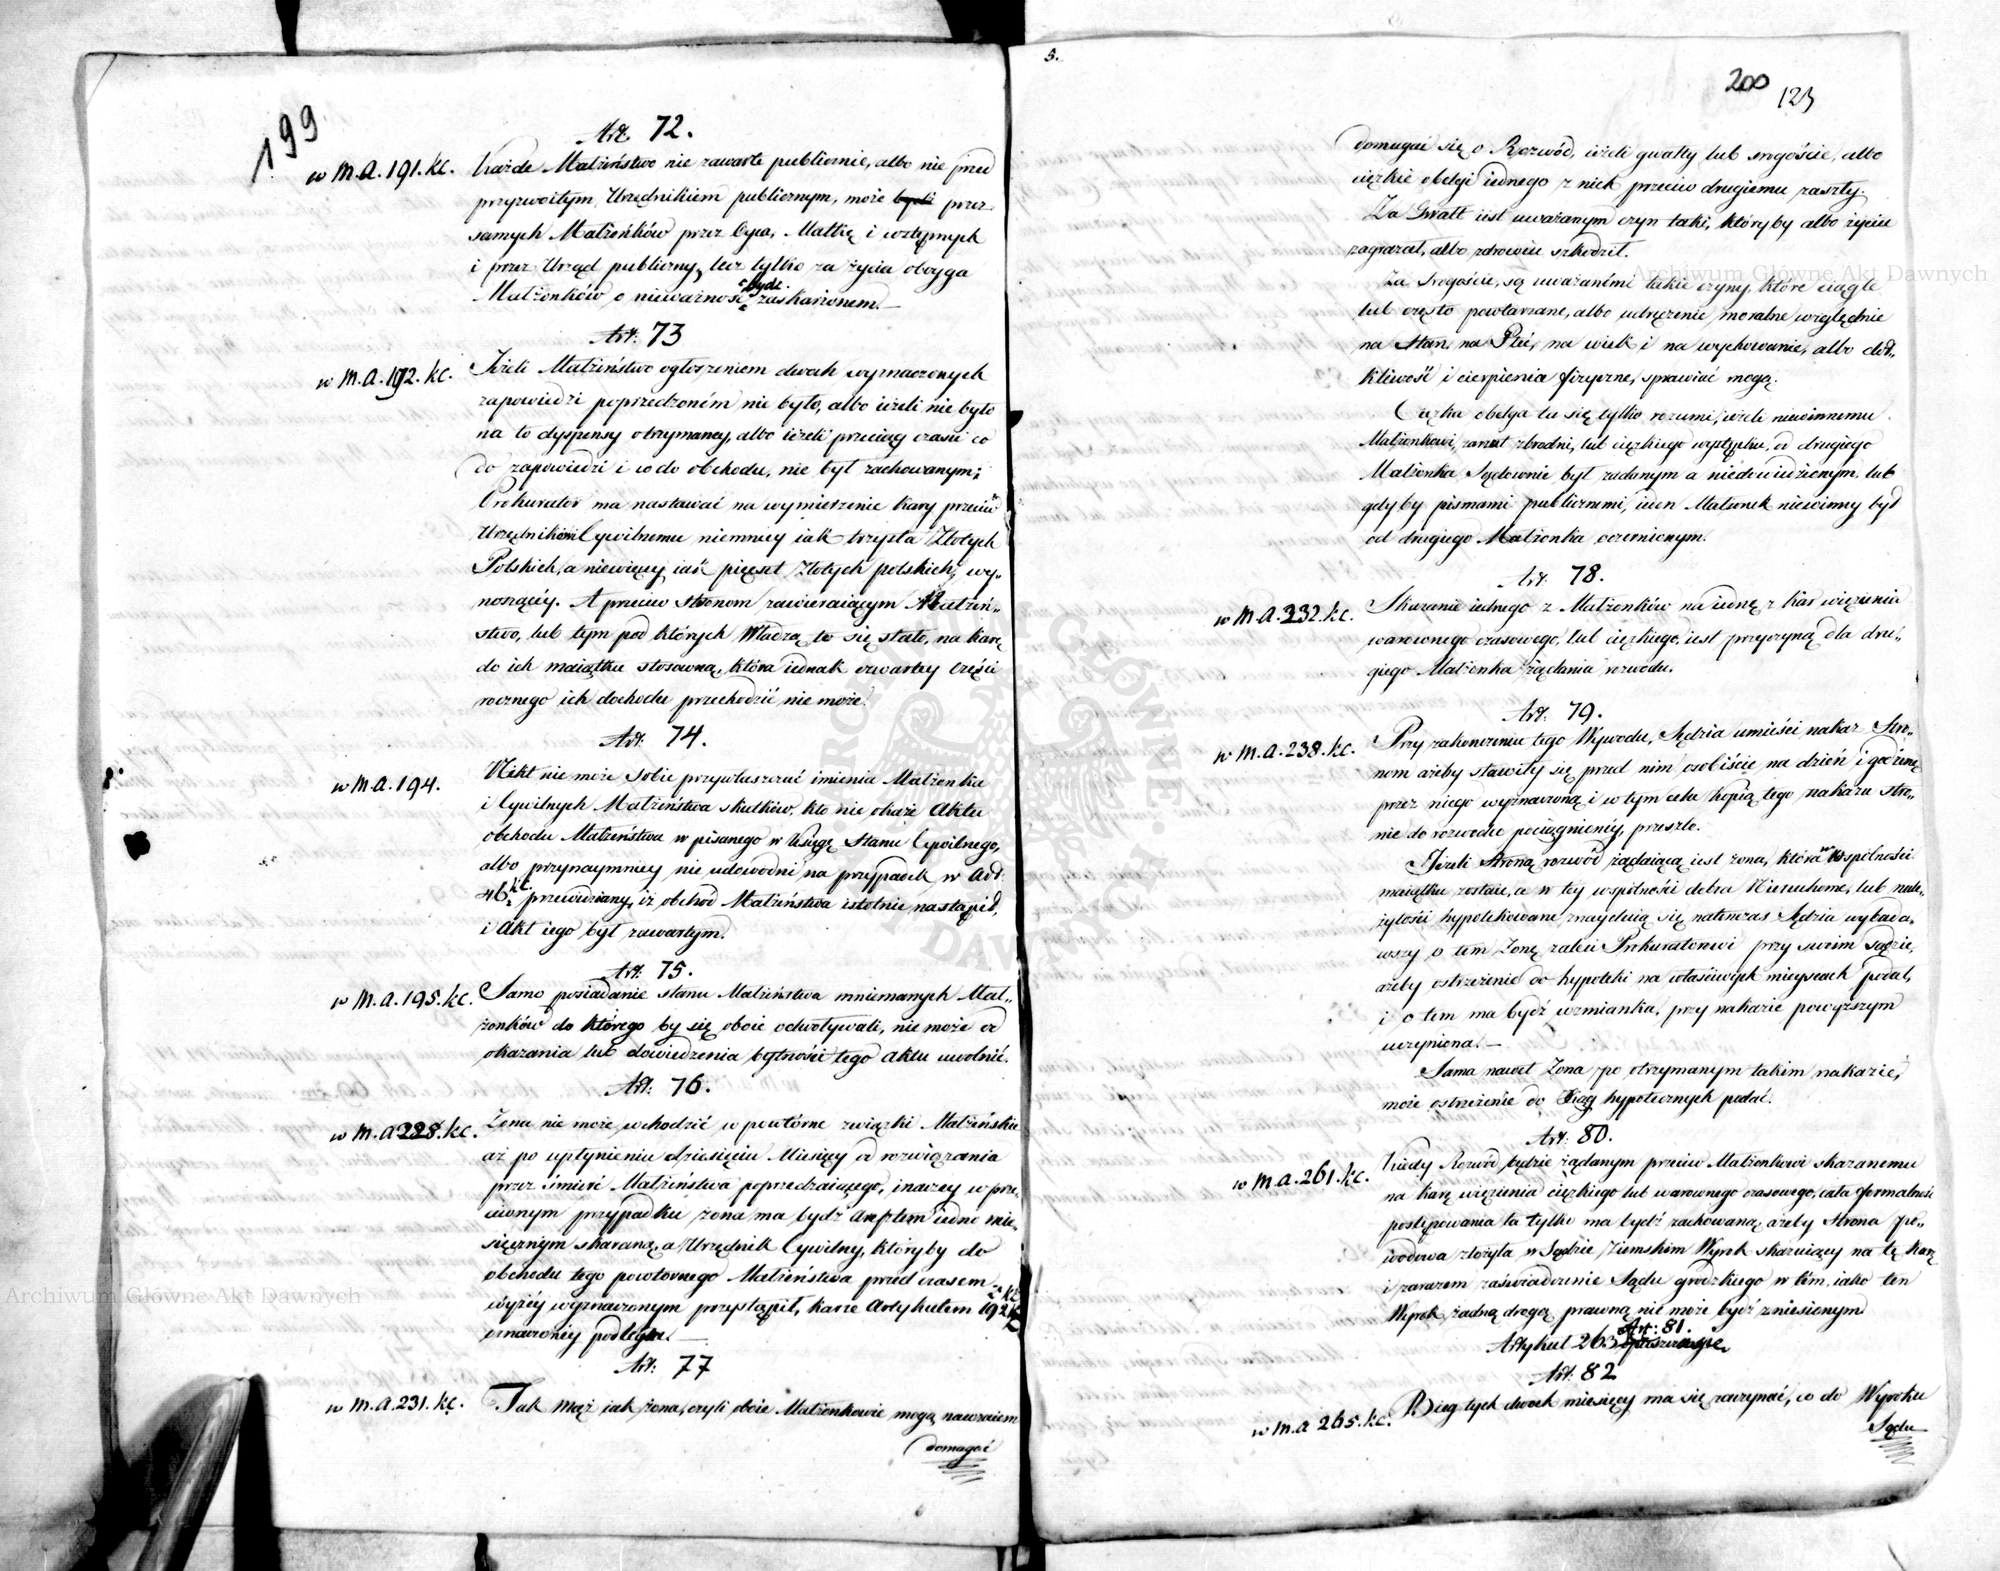 199
Art. 72.
w M.a. 191. kc. Każde Małżeństwo nie zawarte publicznie, albo nie przed
przyzwoitym Urzędnikiem publicznym, może bydź przez
samych Małżonków przez Oyca, Matkę i wstępnych
i przez Urząd publiczny, lecz tylko za życia obojga
Małżonków o nieważność bydź zaskarżonem.—
Art: 73
w M.a. 192. kc. Jeżeli Małżeństwo ogłoszeniem dwóch wyznaczonych
zapowiedzi poprzedzoném nie było, albo ieżeli nie było
na to dyspensy otrzymaney, albo ieżeli przeciąg czasu co
do zapowiedzi i co do obchodu, nie był zachowanym;
Prokurator ma nastawać na wymierzenie kary przeciw
Urzędnikowi Cywilnemu niemniey iak trzysta Złotych
Polskich, a niewięcey iak pięćset Złotych polskich, wy„
noszącéy. A przeciw stronom zawieraiącym Małżeń„
stwo, lub tym pod których Władzą to się stało, na karę
do ich maiątku stosowną, która iednak czwartey części
rocznego ich dochodu przechodzić nie może.
Art: 74.
w M.a. 194. Nikt nie może sobie przywłaszczać imienia Małżonka
i Cywilnych Małżeństwa skutków, kto nie okaże Aktu
obchodu Małżeństwa w pisanego w Księgę Stanu Cywilnego,
albo przynaymniey nie udowodni na przypadek w Art:
46 kc. przewidziany, iż obchód Małżeństwa istotnie nastąpił,
i Akt iego był zawartym.
Art: 75.
w M.a. 195. kc. Samo posiadanie stanu Małżeństwa mniemanych Mał„
żonków do którego by się oboie odwoływali, nie może od
okazania lub dowiedzenia bytności tego Aktu uwolnić.
Art: 76.
w M.a 228. kc. Żona nie może wchodzić w powtórne związki Małżeńskie
aż po upłynieniu dziesięciu Miesięcy od rozwiązania
przez śmierć Małżeństwa poprzedzaiącego, inaczey w prze„
ciwnym przypadku żona ma bydź Aresztem iedno mie„
sięcznym skaraną, a Urzędnik Cywilny, któryby do
obchodu tego powtórnego Małżeństwa przed czasem
wyżéy wyznaczonym przystąpił, karze Artykułem 192 kc.
oznaczoney podlegnie.—
Art: 77
w M.a. 231. kc. Tak mąż iak żona, czyli oboie Małżonkowie mogą nawzaiem
domagać
5.
200
123
domagać się o Rozwód, ieżeli gwałty lub srogoście, albo
ciężkie obelgi iednego z nich przeciw drugiemu zaszły.
Za Gwałt iest uważanym czyn taki, któryby albo życiu
zagrażał, albo zdrowiu szkodził.
Za srogoście, są uważanémi takie czyny, które ciągle
lub często powtarzane, albo udręczenie moralne względnie
na stan, na Płeć, na wiek i na wychowanie, albo dot„
kliwość i cierpienia fizyczne, sprawiać mogą.
Ciężka obelga tu się tylko rozumi, ieżeli niewinnemu
Małżonkowi, zarzut zbrodni, lub ciężkiego występku, od drugiego
Małżonka Sądownie był zadanym a niedowiedzionym, lub
gdyby pismami publicznemi, ieden Małżonek niewinny był
od drugiego Małżonka oczernionym.
Art: 78.
w M.a. 232. kc. Skazanie iednego z Małżonków na iednę z kar więzienia
warownego czasowego, lub ciężkiego, iest przyczyną dla dru„
giego Małżonka żądania rozwodu.
Art: 79.
w M.a. 238. kc. Przy zakończeniu tego Wywodu, Sędzia umieści nakaz Stro„
nom ażeby stawiły się przed nim osobiście na dzień i godzinę
przez niego wyznaczoną i w tym celu kopią tego nakazu stro„
nie do rozwodu pociągnięnéy, prześle.
Jeżeli Stroną rozwód żądaiącą iest żona, która w wspólności
maiątku zostaie, a w tey wspólności dobra Nieruchome, lub nale„
żytości hypotekowane znayduią się natenczas Sędzia wybada„
wszy o tem Żonę zaleci Prokuratorowi przy swoim sądzie,
ażeby ostrzeżenie do hypoteki na właściwych mieyscach podał,
i o tem ma bydź wzmianka, przy nakazie powyższym
uczyniona.—
Sama nawet Żona po otrzymanym takim nakazie,
może ostrzeżenie do Ksiąg hypotecznych podać.
Art: 80.
w M.a. 261. kc. Kiedy Rozwód będzie żądanym przeciw Małżonkowi skazanemu
na karę więzienia ciężkiego lub warownego czasowego, cała formalność
postępowania ta tylko ma bydź zachowaną, ażeby Strona po„
wodowa złożyła w Sądzie Ziemskim Wyrok skazuiący na tę karę
i zarazem zaświadczenie Sądu grodzkiego w tém, iako ten
Wyrok żadną drogą prawną nié może bydź zniesionym
Art: 81.
Artykuł 263 opuszcza się.
Art: 82
w M.a 265. kc. Bieg tych dwóch miesięcy ma się zaczynać, co do Wyroku
Sądu